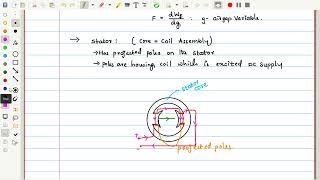 F = dWf/dg : g - airgap variable.
→ Stator: ( Core + Coil Assembly)
→ Has projected poles on the stator
→ poles are housing coil which is excited DC supply
stator core
+
-
projected poles